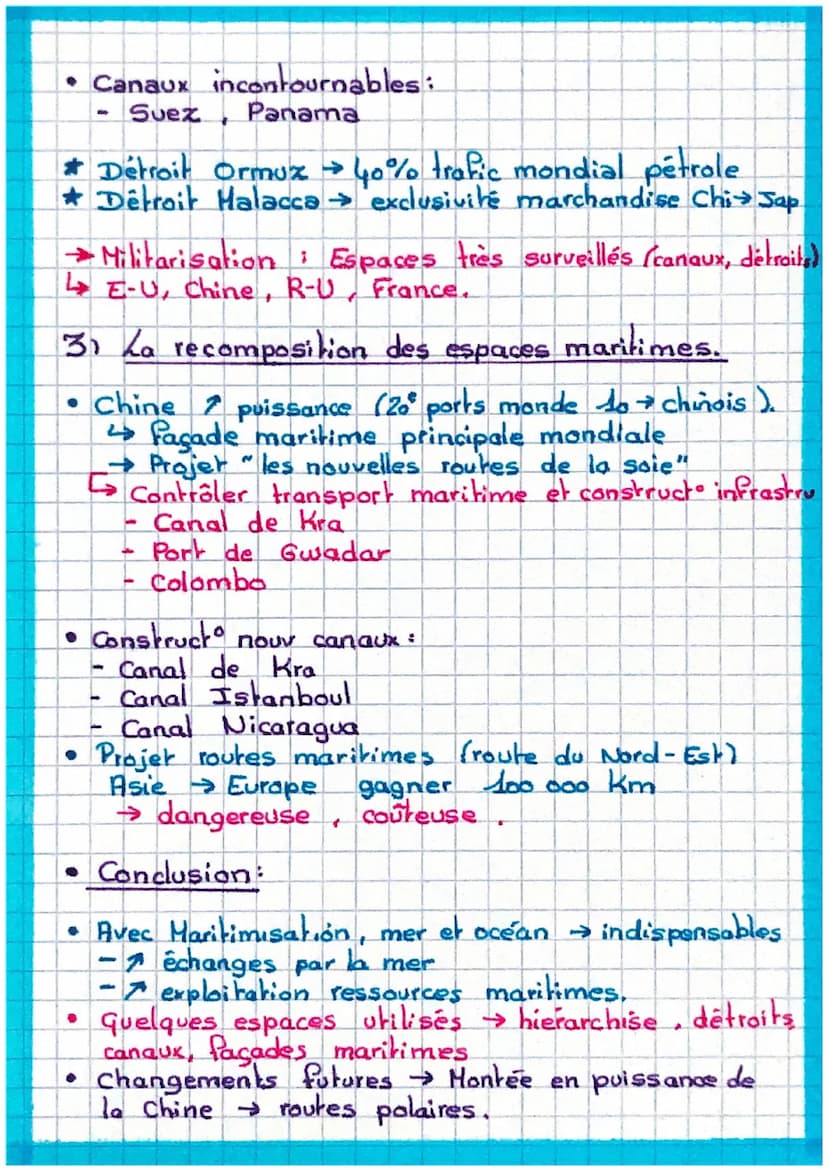 • Canaux incontournables:
- Suez, Panama
★ Détroit Ormuz → 40% trafic mondial pétrole
★ Détroit Malacca → exclusivité marchandise Chi→ Jap
→ Militarisation : Espaces très surveillés (canaux, détroits)
↳ E-U, Chine, R-U, France.
3) La recomposition des espaces maritimes.
• Chine ↗ puissance (20° ports monde 10 → chinois).
↳ façade maritime principale mondiale
→ Projet "les nouvelles routes de la soie"
↳ Contrôler transport maritime et construct° infrastru
- Canal de Kra
- Port de Gwadar
- Colombo
• Construct° nouv canaux :
- Canal de Kra
- Canal Istanboul
- Canal Nicaragua
• Projet routes maritimes (route du Nord-Est)
Asie → Europe gagner 100 000 Km
→ dangereuse, coûteuse.
• Conclusion:
• Avec Maritimisation, mer et océan → indispensables
- ↗ échanges par la mer
- ↗ exploitation ressources maritimes.
• quelques espaces utilisés → hiérarchise, détroits,
canaux, façades maritimes
• Changements futures → Montée en puissance de
la Chine → routes polaires.